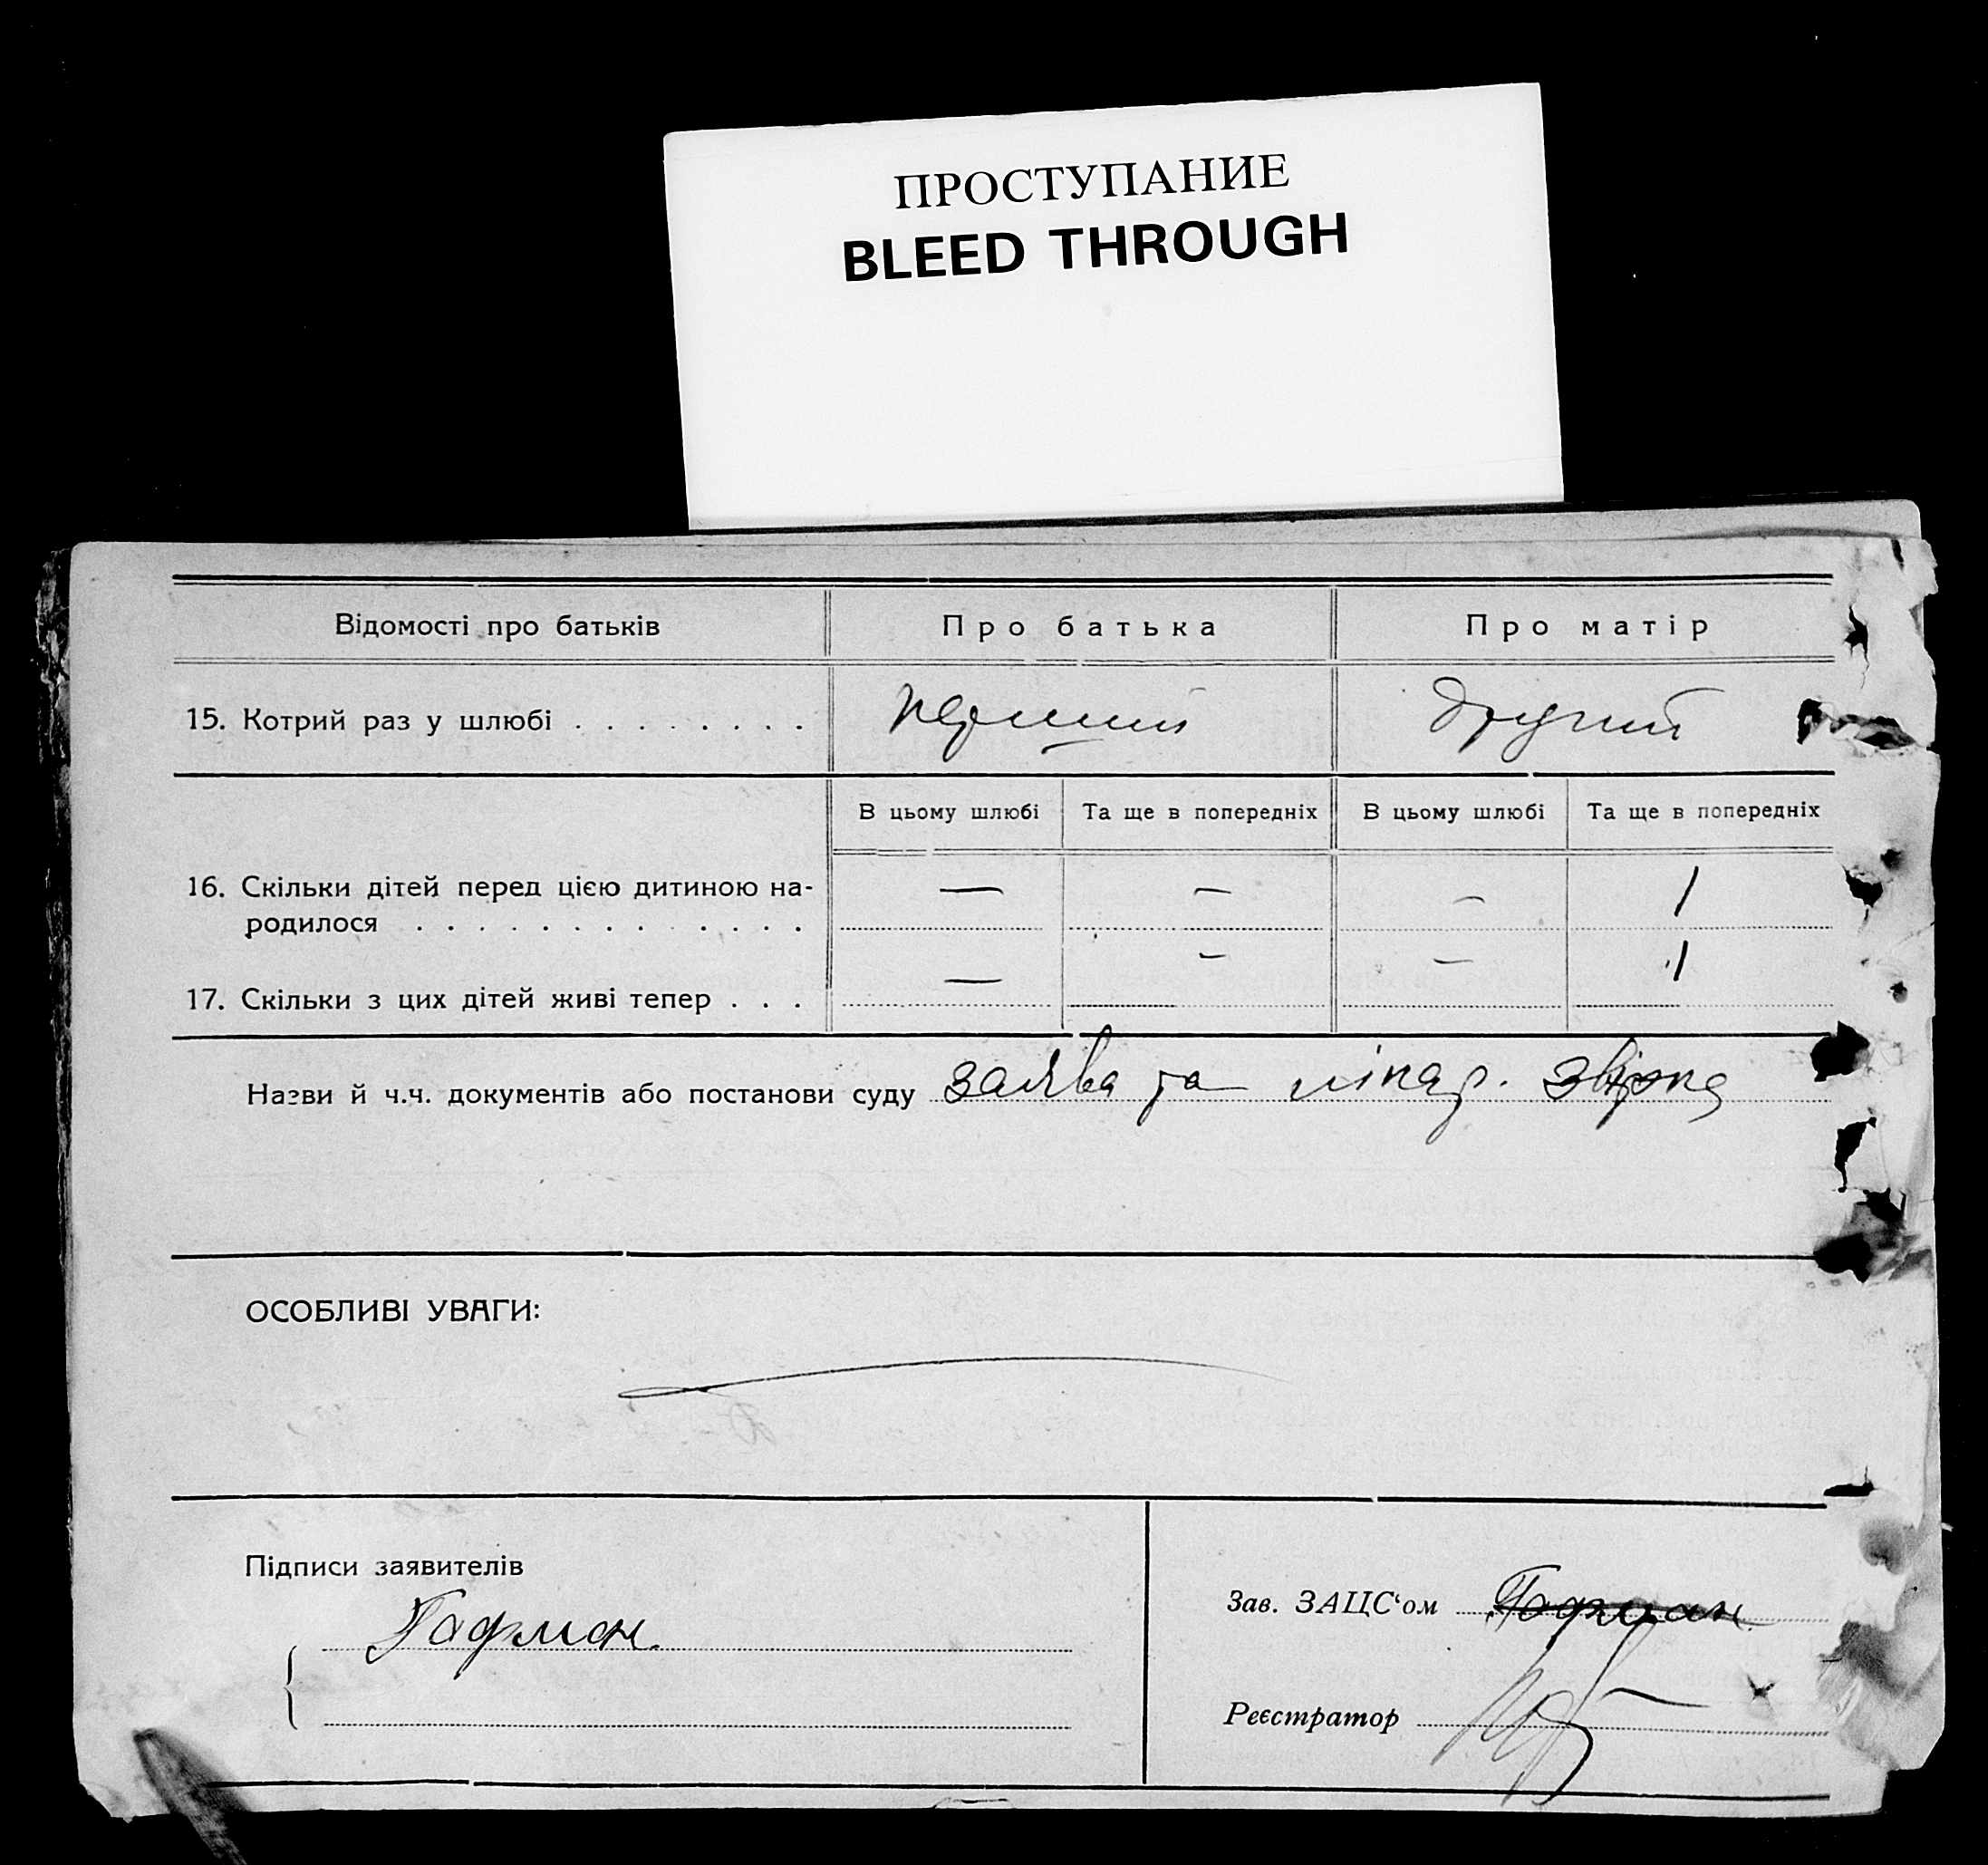 ПРОСТУПАНИЕ
BLEED THROUGH
Відомості про батьків Про батька Про матір
15. Котрий раз у шлюбі . . . . . . . . перший другий
В цьому шлюбі Та ще в попередніх В цьому шлюбі Та ще в попередніх
16. Скільки дітей перед цією дитиною на-
родилося . . . . . . . . . . . . . — — — 1
17. Скільки з цих дітей живі тепер . . . — — — 1
Назви й ч.ч. документів або постанови суду заява та лікар.
ОСОБЛИВІ УВАГИ:
Підписи заявителів
Гофман
Зав. ЗАЦС‘ом Гофман
Реєстратор